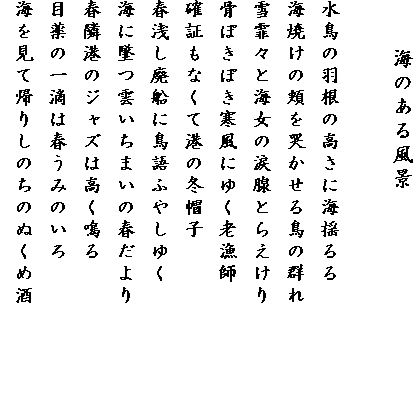 海のある風景
水鳥の羽根の高さに海揺るる
海焼けの頬を哭かせる鳥の群れ
雪霏々と海女の涙腺とらえけり
骨ぽきぽき寒風にゆく老漁師
確証もなくて港の冬帽子
春浅し廃船に鳥語ふやしゆく
海に墜つ雲いちまいの春だより
春隣港のジャズは高く鳴る
目薬の一滴は春うみのいろ
海を見て帰りしのちのぬくめ酒